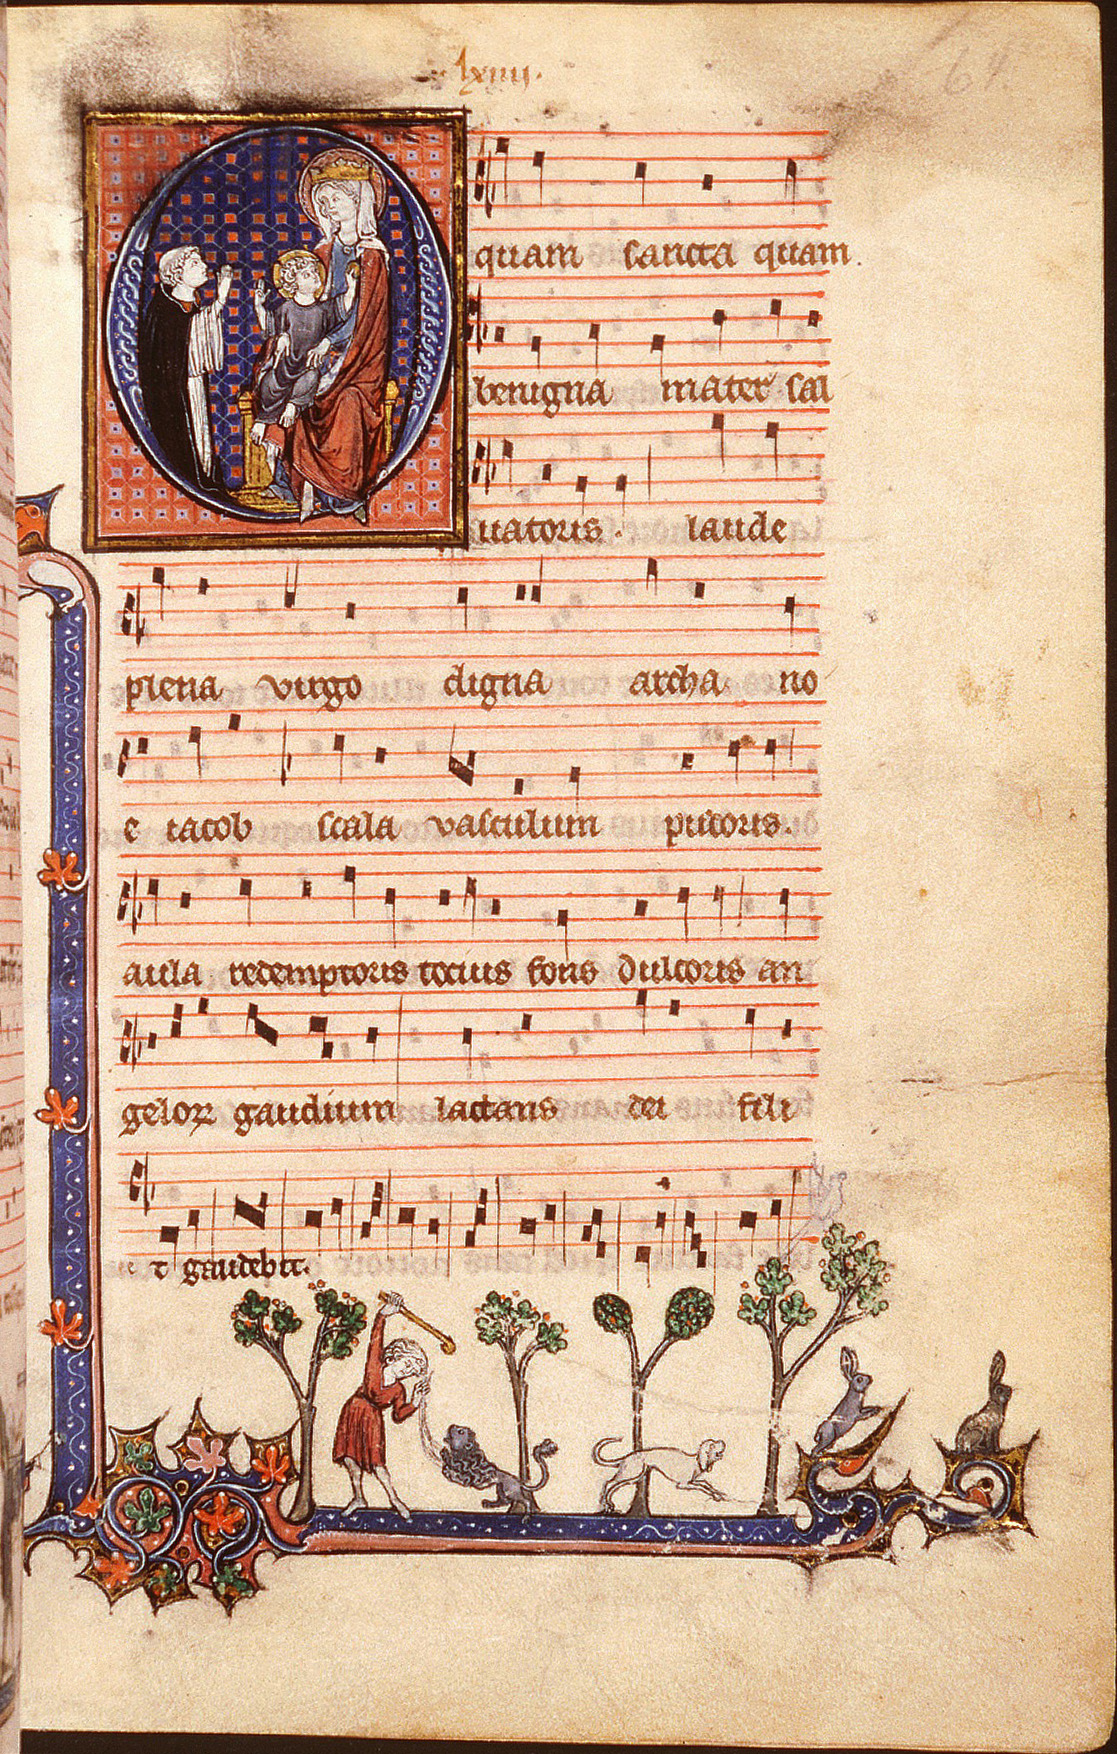 lxiiii.
64.
O quam sancta quam
benigna mater sal
uatoris. laude
plena virgo digna archa no
e iacob scala vasculum pudoris.
aula redemptoris tocius fons dulcoris an
geloꝝ gaudium lactans dei fili
et gaudebit.